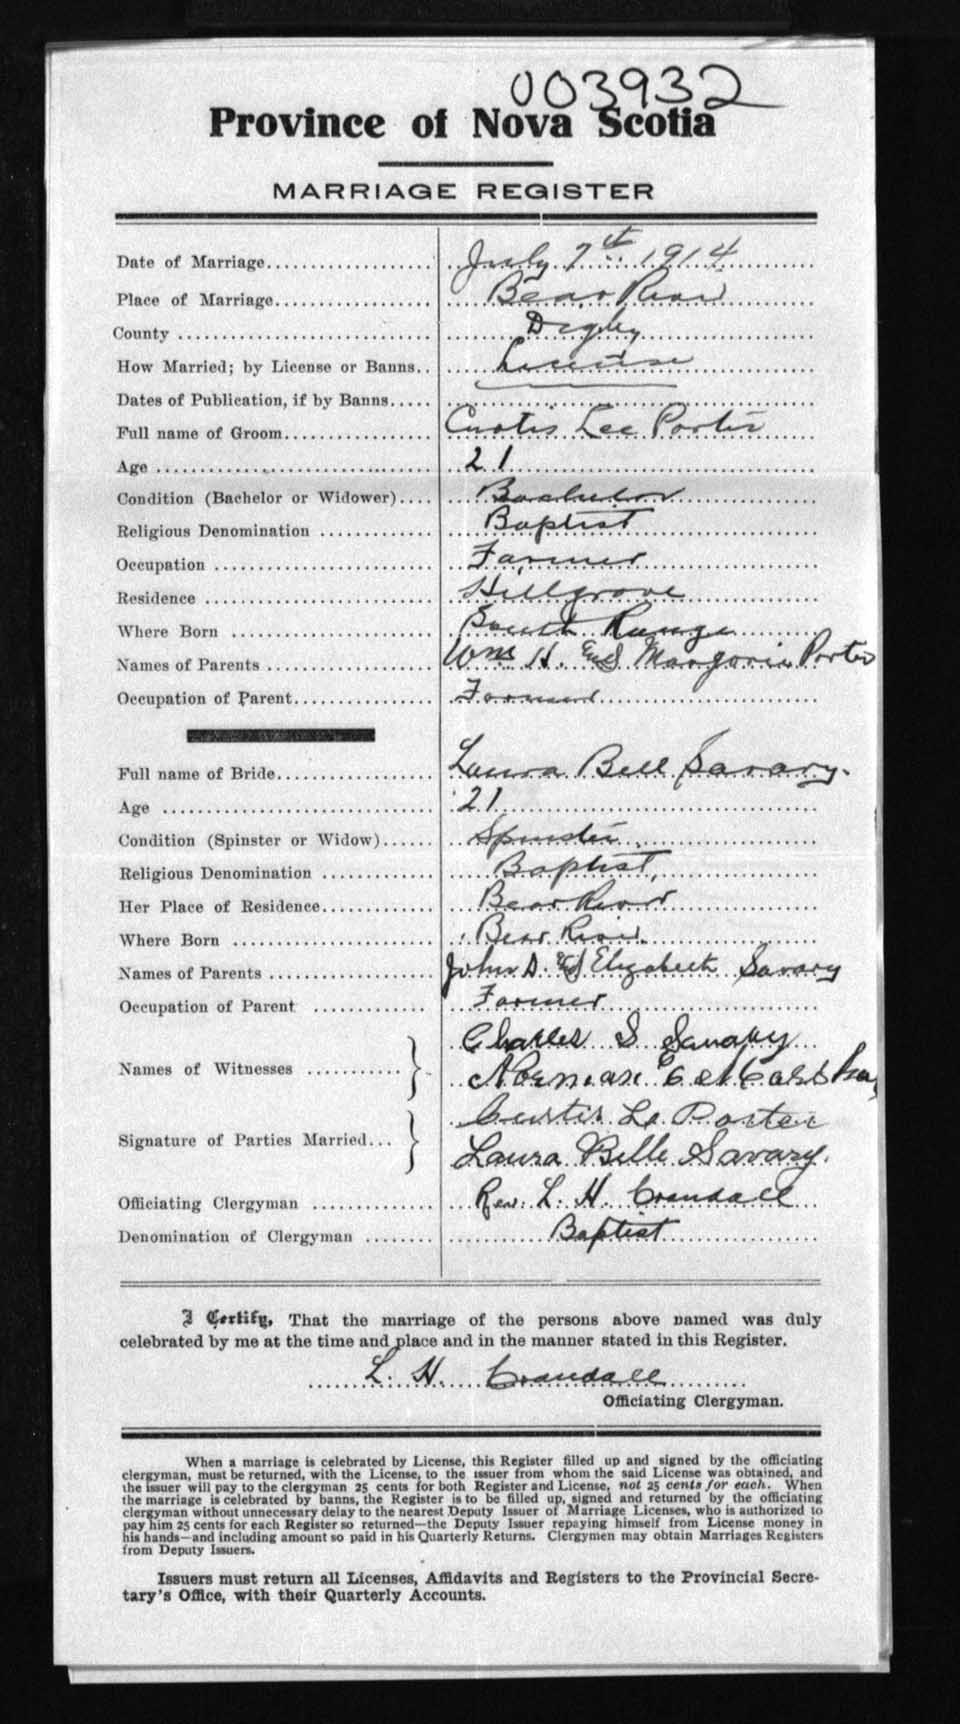 003932
Province of Nova Scotia
MARRIAGE REGISTER
Date of Marriage.................... July 7th 1914
Place of Marriage.................... Bear River
County .................... Digby
How Married; by License or Banns.. License
Dates of Publication, if by Banns.....
Full name of Groom.................... Curtis Lee Porter
Age .................... 21
Condition (Bachelor or Widower).... Bachelor
Religious Denomination .............. Baptist
Occupation .................... Farmer
Residence .................... Hillgrove
Where Born .................... South Range
Names of Parents .................... Wm H. and Marjorie Porter
Occupation of Parent.................... Farmer
Full name of Bride.................... Laura Bell Savary.
Age .................... 21
Condition (Spinster or Widow)...... Spinster
Religious Denomination .............. Baptist,
Her Place of Residence.............. Bear River
Where Born .................... Bear River.
Names of Parents .................... John D. and Elizabeth Savary
Occupation of Parent .............. Farmer
Charles S Savary
Names of Witnesses ............ } Norman
Curtis Le Porter
Signature of Parties Married... } Laura Belle Savary.
Officiating Clergyman .............. Rev. L. H. Crandall
Denomination of Clergyman ........ Baptist
I Certify, That the marriage of the persons above named was duly
celebrated by me at the time and place and in the manner stated in this Register.
L. H. Crandall
Officiating Clergyman.
When a marriage is celebrated by License, this Register filled up and signed by the officiating
clergyman, must be returned, with the License, to the issuer from whom the said License was obtained, and
the issuer will pay to the clergyman 25 cents for both Register and License, not 25 cents for each. When
the marriage is celebrated by banns, the Register is to be filled up, signed and returned by the officiating
clergyman without unnecessary delay to the nearest Deputy Issuer of Marriage Licenses, who is authorized to
pay him 25 cents for each Register so returned—the Deputy Issuer repaying himself from License money in
his hands—and including amount so paid in his Quarterly Returns. Clergymen may obtain Marriages Registers
from Deputy Issuers.
Issuers must return all Licenses, Affidavits and Registers to the Provincial Secre-
tary's Office, with their Quarterly Accounts.